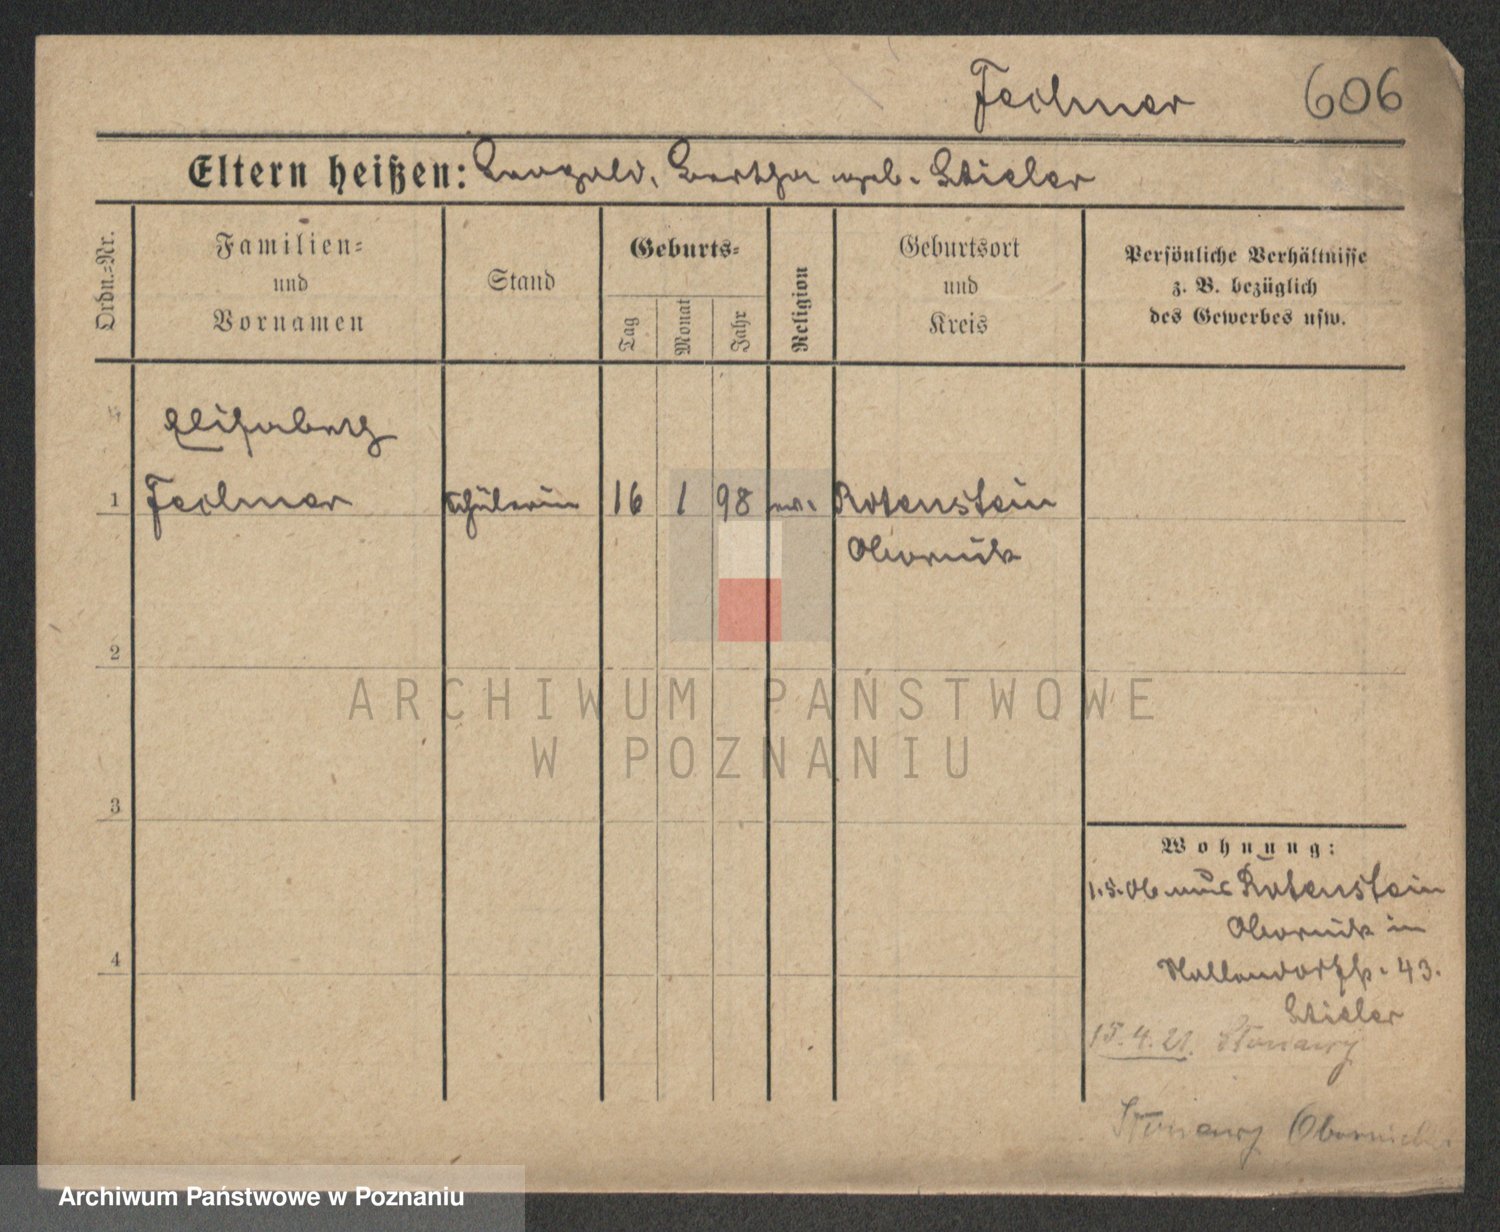 Fechner 606
Eltern heißen: Leopold, Bertha geb. Stieler
Ordn.=Nr.
Familien=
und
Vornamen
Stand
Geburts=
Tag
Monat
Jahr
Religion
Geburtsort
und
Kreis
Persönliche Verhältnisse
z. B. bezüglich
des Gewerbes usw.
Elisabeth
1 Fechner Schülerin 16 1 98 ev. Rotenstein
Obornik
2
ARCHIWUM PAŃSTWOWE
W POZNANIU
3
Wohnung:
Rotenstein
4 Obornik in
43.
Stieler
15.4.21.
Archiwum Państwowe w Poznaniu